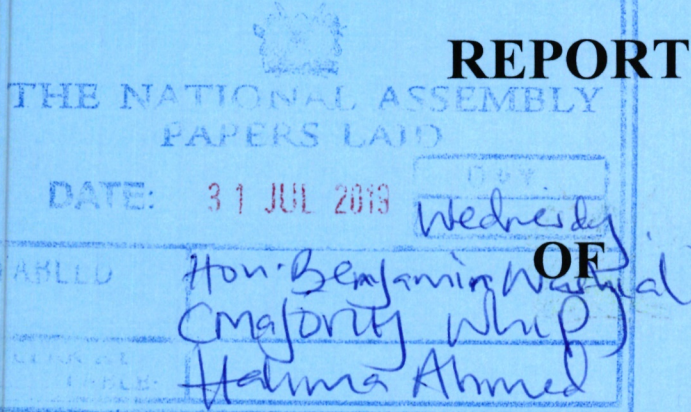 REPORT
THE NATIONAL ASSEMBLY
PAPERS LAID
DAY.
DATE: 31 JUL 2019 Wednesday
OF
TABLED Hon. Benjamin
(Majority Whip)
CLERK AT
TABLE: Halima Ahmed